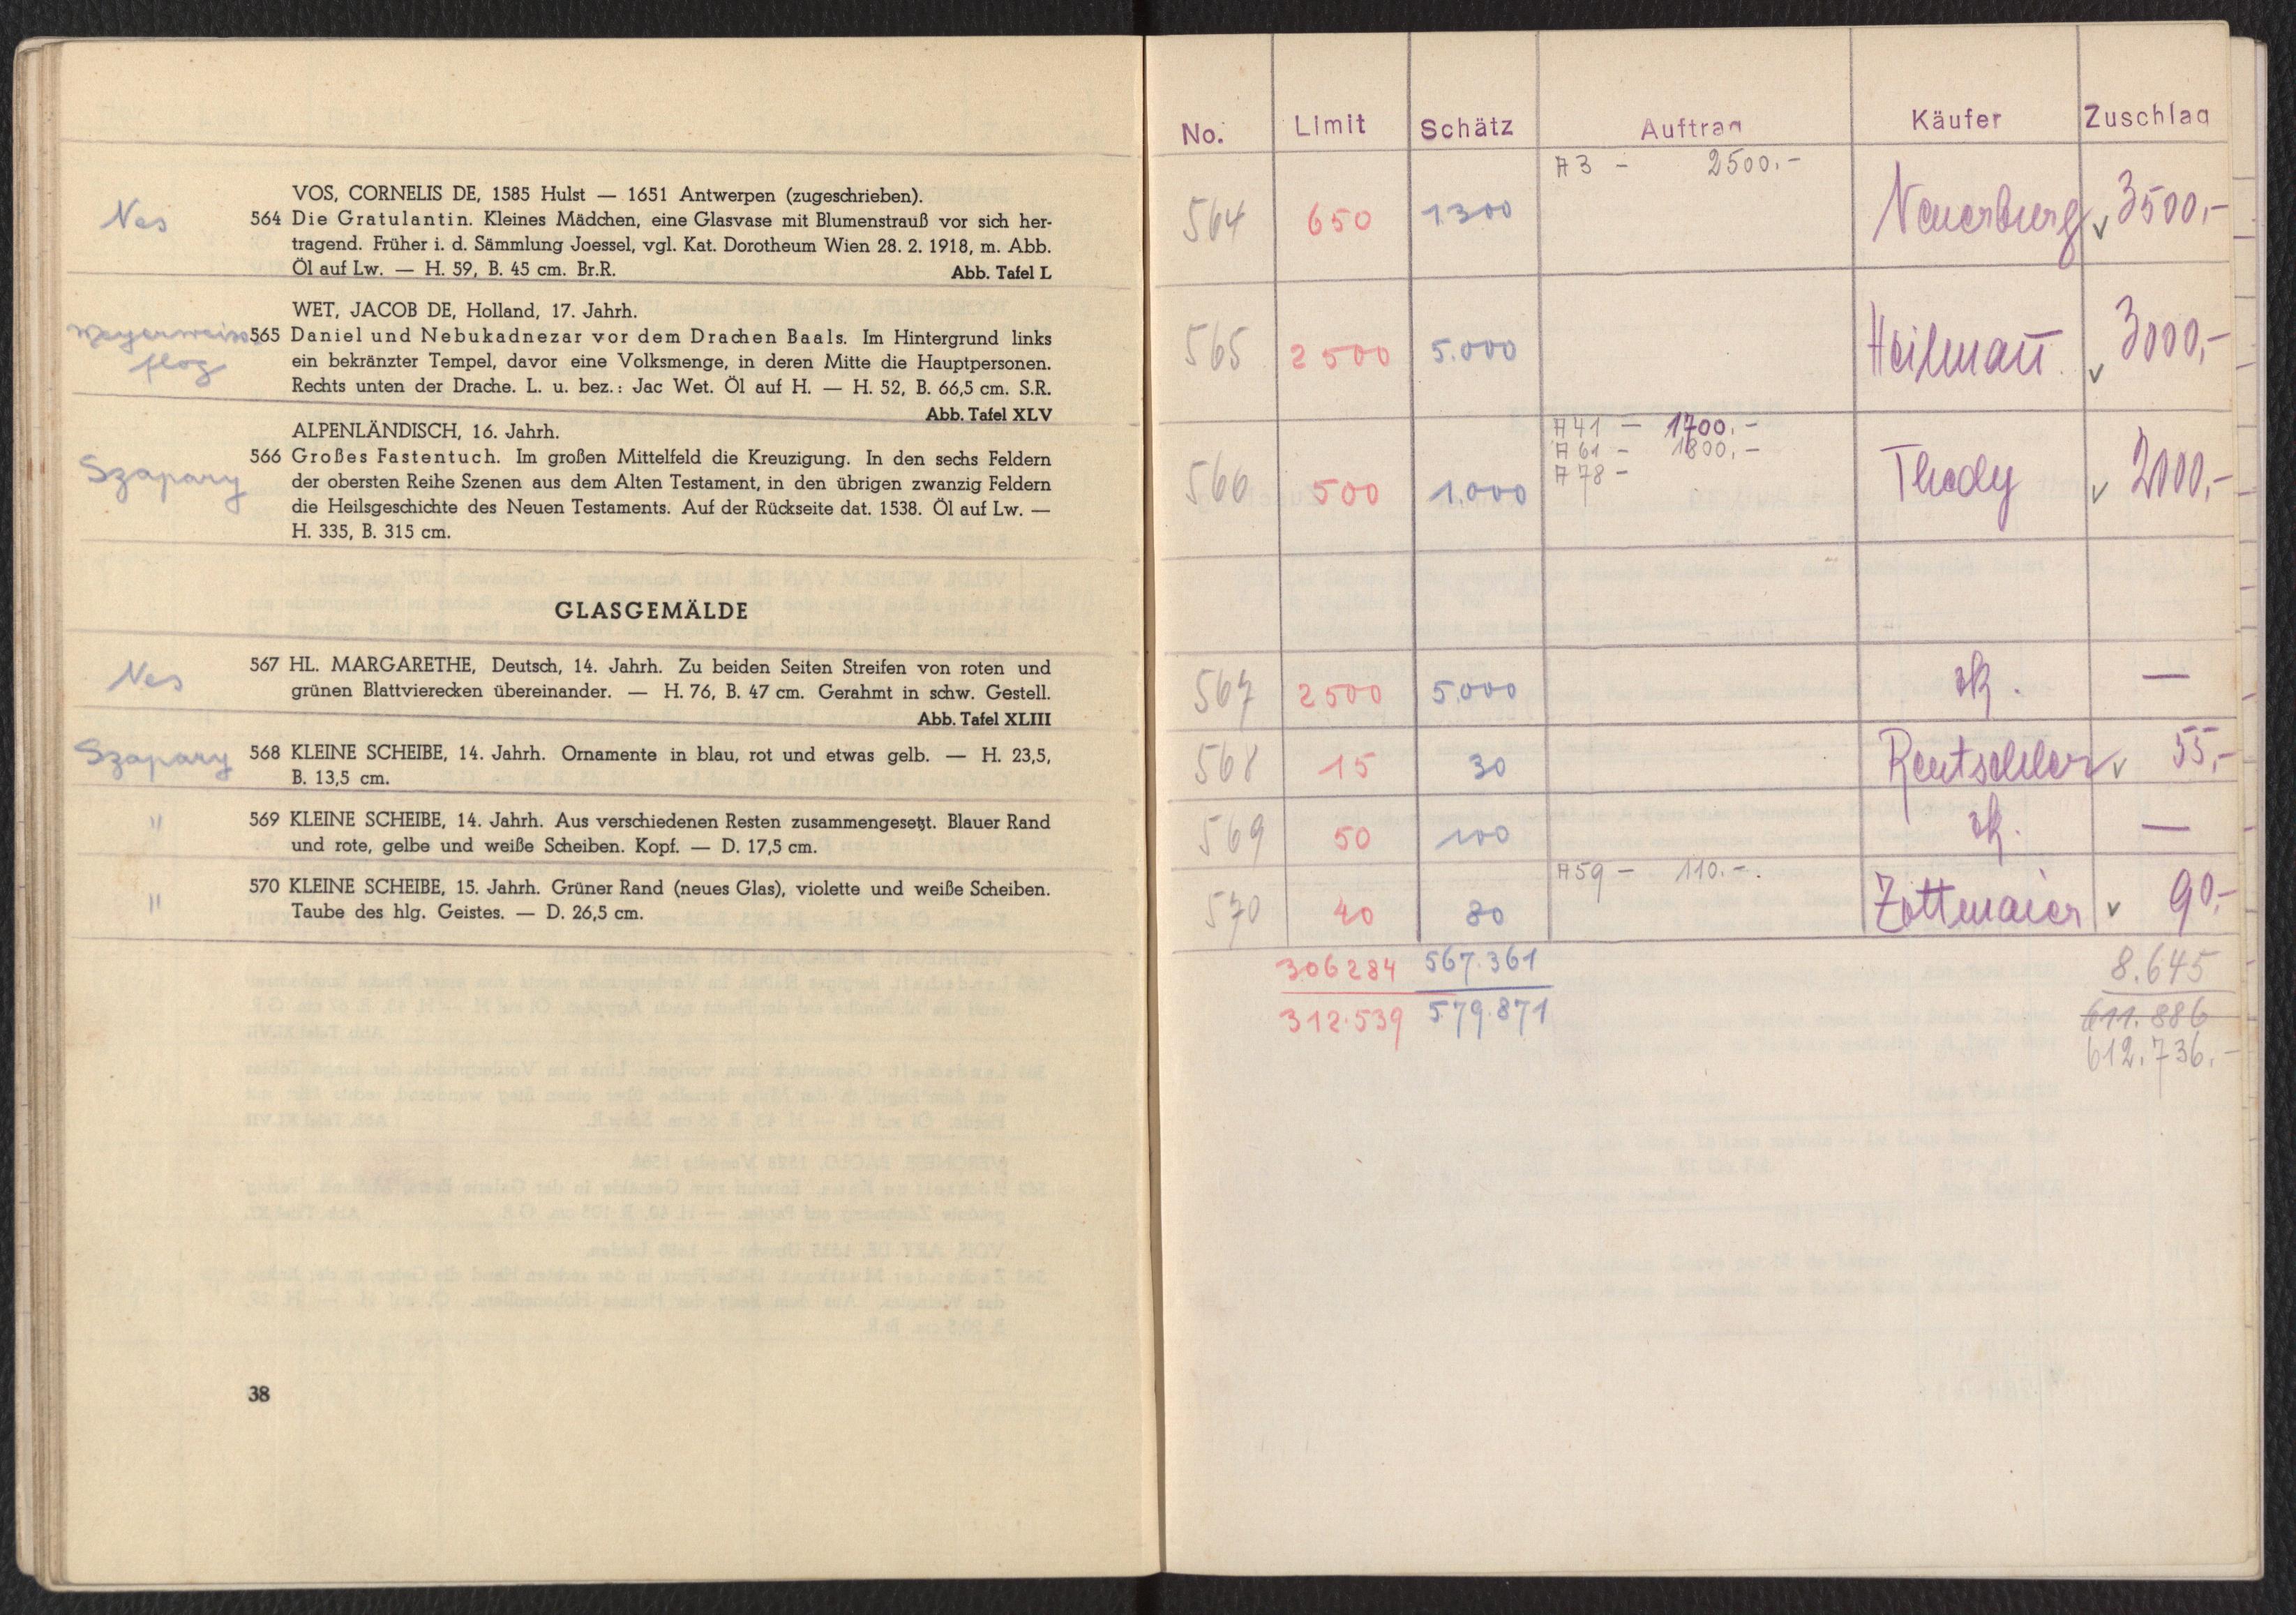 VOS, CORNELIS DE, 1585 Hulst — 1651 Antwerpen (zugeschrieben).
Nes
564 Die Gratulantin. Kleines Mädchen, eine Glasvase mit Blumenstrauß vor sich her-
tragend. Früher i. d. Sämmlung Joessel, vgl. Kat. Dorotheum Wien 28. 2. 1918, m. Abb.
Öl auf Lw. — H. 59, B. 45 cm. Br.R. Abb. Tafel L
WET, JACOB DE, Holland, 17. Jahrh.
565 Daniel und Nebukadnezar vor dem Drachen Baals. Im Hintergrund links
ein bekränzter Tempel, davor eine Volksmenge, in deren Mitte die Hauptpersonen.
Rechts unten der Drache. L. u. bez.: Jac Wet. Öl auf H. — H. 52, B. 66,5 cm. S.R.
Abb. Tafel XLV
ALPENLÄNDISCH, 16. Jahrh.
Szapary
566 Großes Fastentuch. Im großen Mittelfeld die Kreuzigung. In den sechs Feldern
der obersten Reihe Szenen aus dem Alten Testament, in den übrigen zwanzig Feldern
die Heilsgeschichte des Neuen Testaments. Auf der Rückseite dat. 1538. Öl auf Lw. —
H. 335, B. 315 cm.
GLASGEMÄLDE
Nes
567 HL. MARGARETHE, Deutsch, 14. Jahrh. Zu beiden Seiten Streifen von roten und
grünen Blattvierecken übereinander. — H. 76, B. 47 cm. Gerahmt in schw. Gestell.
Abb. Tafel XLIII
Szapary
568 KLEINE SCHEIBE, 14. Jahrh. Ornamente in blau, rot und etwas gelb. — H. 23,5,
B. 13,5 cm.
"
569 KLEINE SCHEIBE, 14. Jahrh. Aus verschiedenen Resten zusammengesetzt. Blauer Rand
und rote, gelbe und weiße Scheiben. Kopf. — D. 17,5 cm.
"
570 KLEINE SCHEIBE, 15. Jahrh. Grüner Rand (neues Glas), violette und weiße Scheiben.
Taube des hlg. Geistes. — D. 26,5 cm.
38
No. Limit Schätz Auftrag Käufer Zuschlag
A 3 – 2500.–
564 650 1300 Neuerburg v 3500,–
565 2500 5.000 Heilmann v 3000,–
A 41 – 1700.–
A 61 – 1800.–
A 78 –
566 500 1.000 Thody v 2000,–
567 2500 5.000 zk. —
568 15 30 Rentschler v 55,–
569 50 100 zk. —
A 59 – 110.–
570 40 80 Zottmaier v 90,–
306284 567.361 8.645
312.539 579.871 611.886
612.736.–